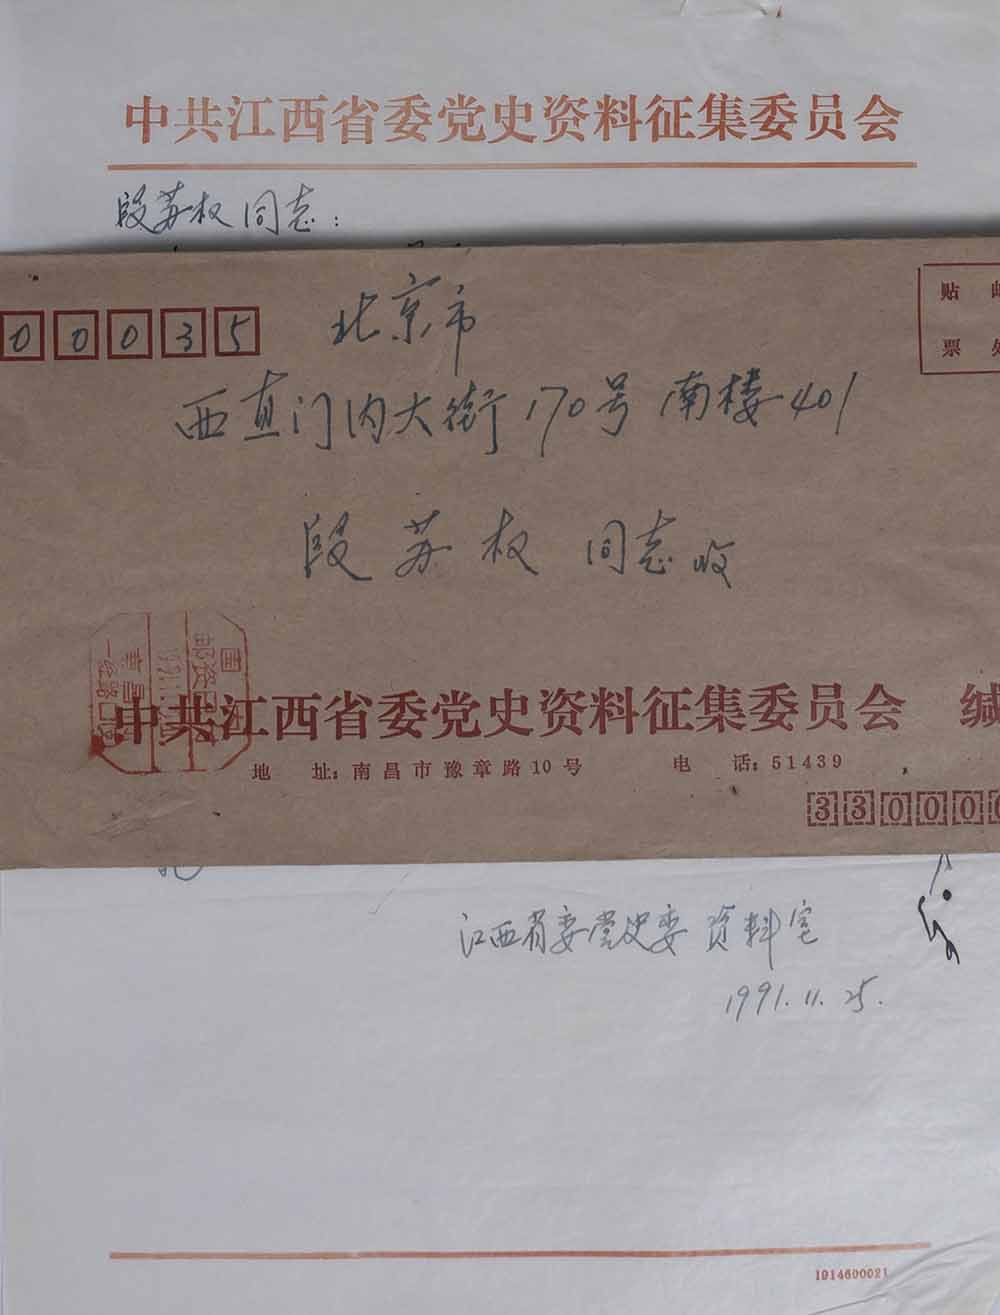 中共江西省委党史资料征集委员会
段苏权同志:
00035
北京市
贴
票
西直门内大街170号南楼401
段苏权 同志收
国
邮资
南昌
中共江西省委党史资料征集委员会 缄
地 址:南昌市豫章路10号 电 话:51439
33000
江西省委党史委资料室
1991.11.25.
1914600021